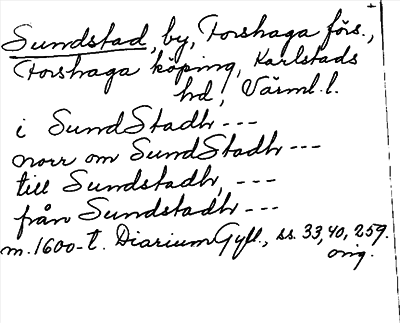 Sundstad, by, Forshaga förs.,
Forshaga köping, Karlstads
hd, Värml.l.
i SundStadh ---
norr om SundStadh ---
till Sundstadh, ---
från Sundstadh ---
m.1600-t. Diarium Gyll., ss. 33, 40, 259.
orig.